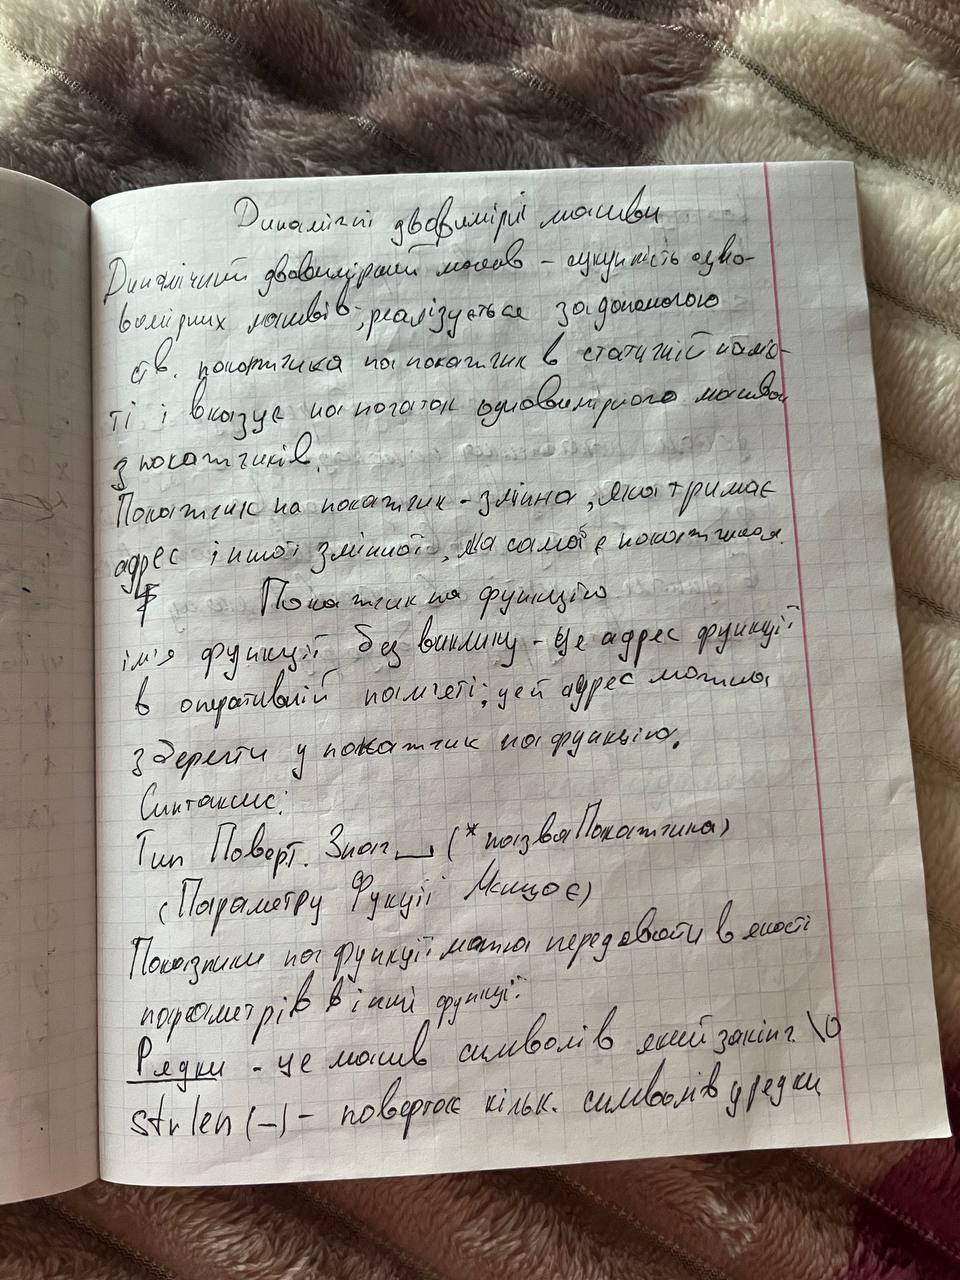 Динамічні двовимірні масиви
Динамічний двовимірний масив - сукупність одно-
вомірних масивів, реалізується за допомогою
ств. покатчика на покатчик в статичній памя-
ті і вказує на початок одновимірного масива
з покатчиків.
Покатчик на покатчик - змінна, яка тримає
адрес іншої змінної, яка сама є покатчиком.
Покатчик на функцію
ім'я функції без виклику - це адрес функції
в оперативній памʼяті; цей адрес можна
зберегти у покатчик на функцію.
Синтаксис:
Тип Поверт. Знач ⎵ (*назваПокатчика)
(Параметру Фукції Якщо є)
Показники на функції можна передавати в якості
параметрів в інші функції.
Рядки - це масив символів який закінч. \0
strlen (-) - повертає кільк. символів у рядку